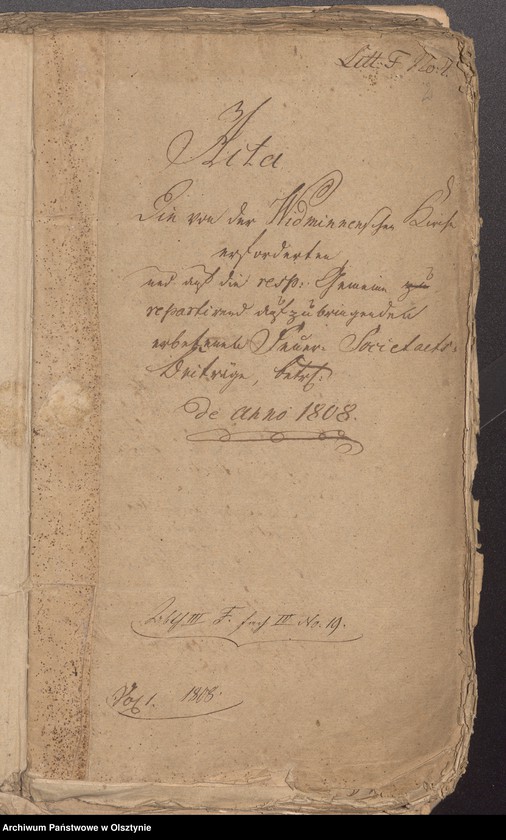 Litt: F No. 7.
Acta
Die von der Widminnenschen Kirche
erforderten
und auf die resp: Gemeine zu
repartirend aufzubringenden
erbetenen Feuer-Societaets-
Beiträge, betr:
de anno 1808.
III F. Fach III No. 19.
Vol 1. 1808.
Archiwum Państwowe w Olsztynie